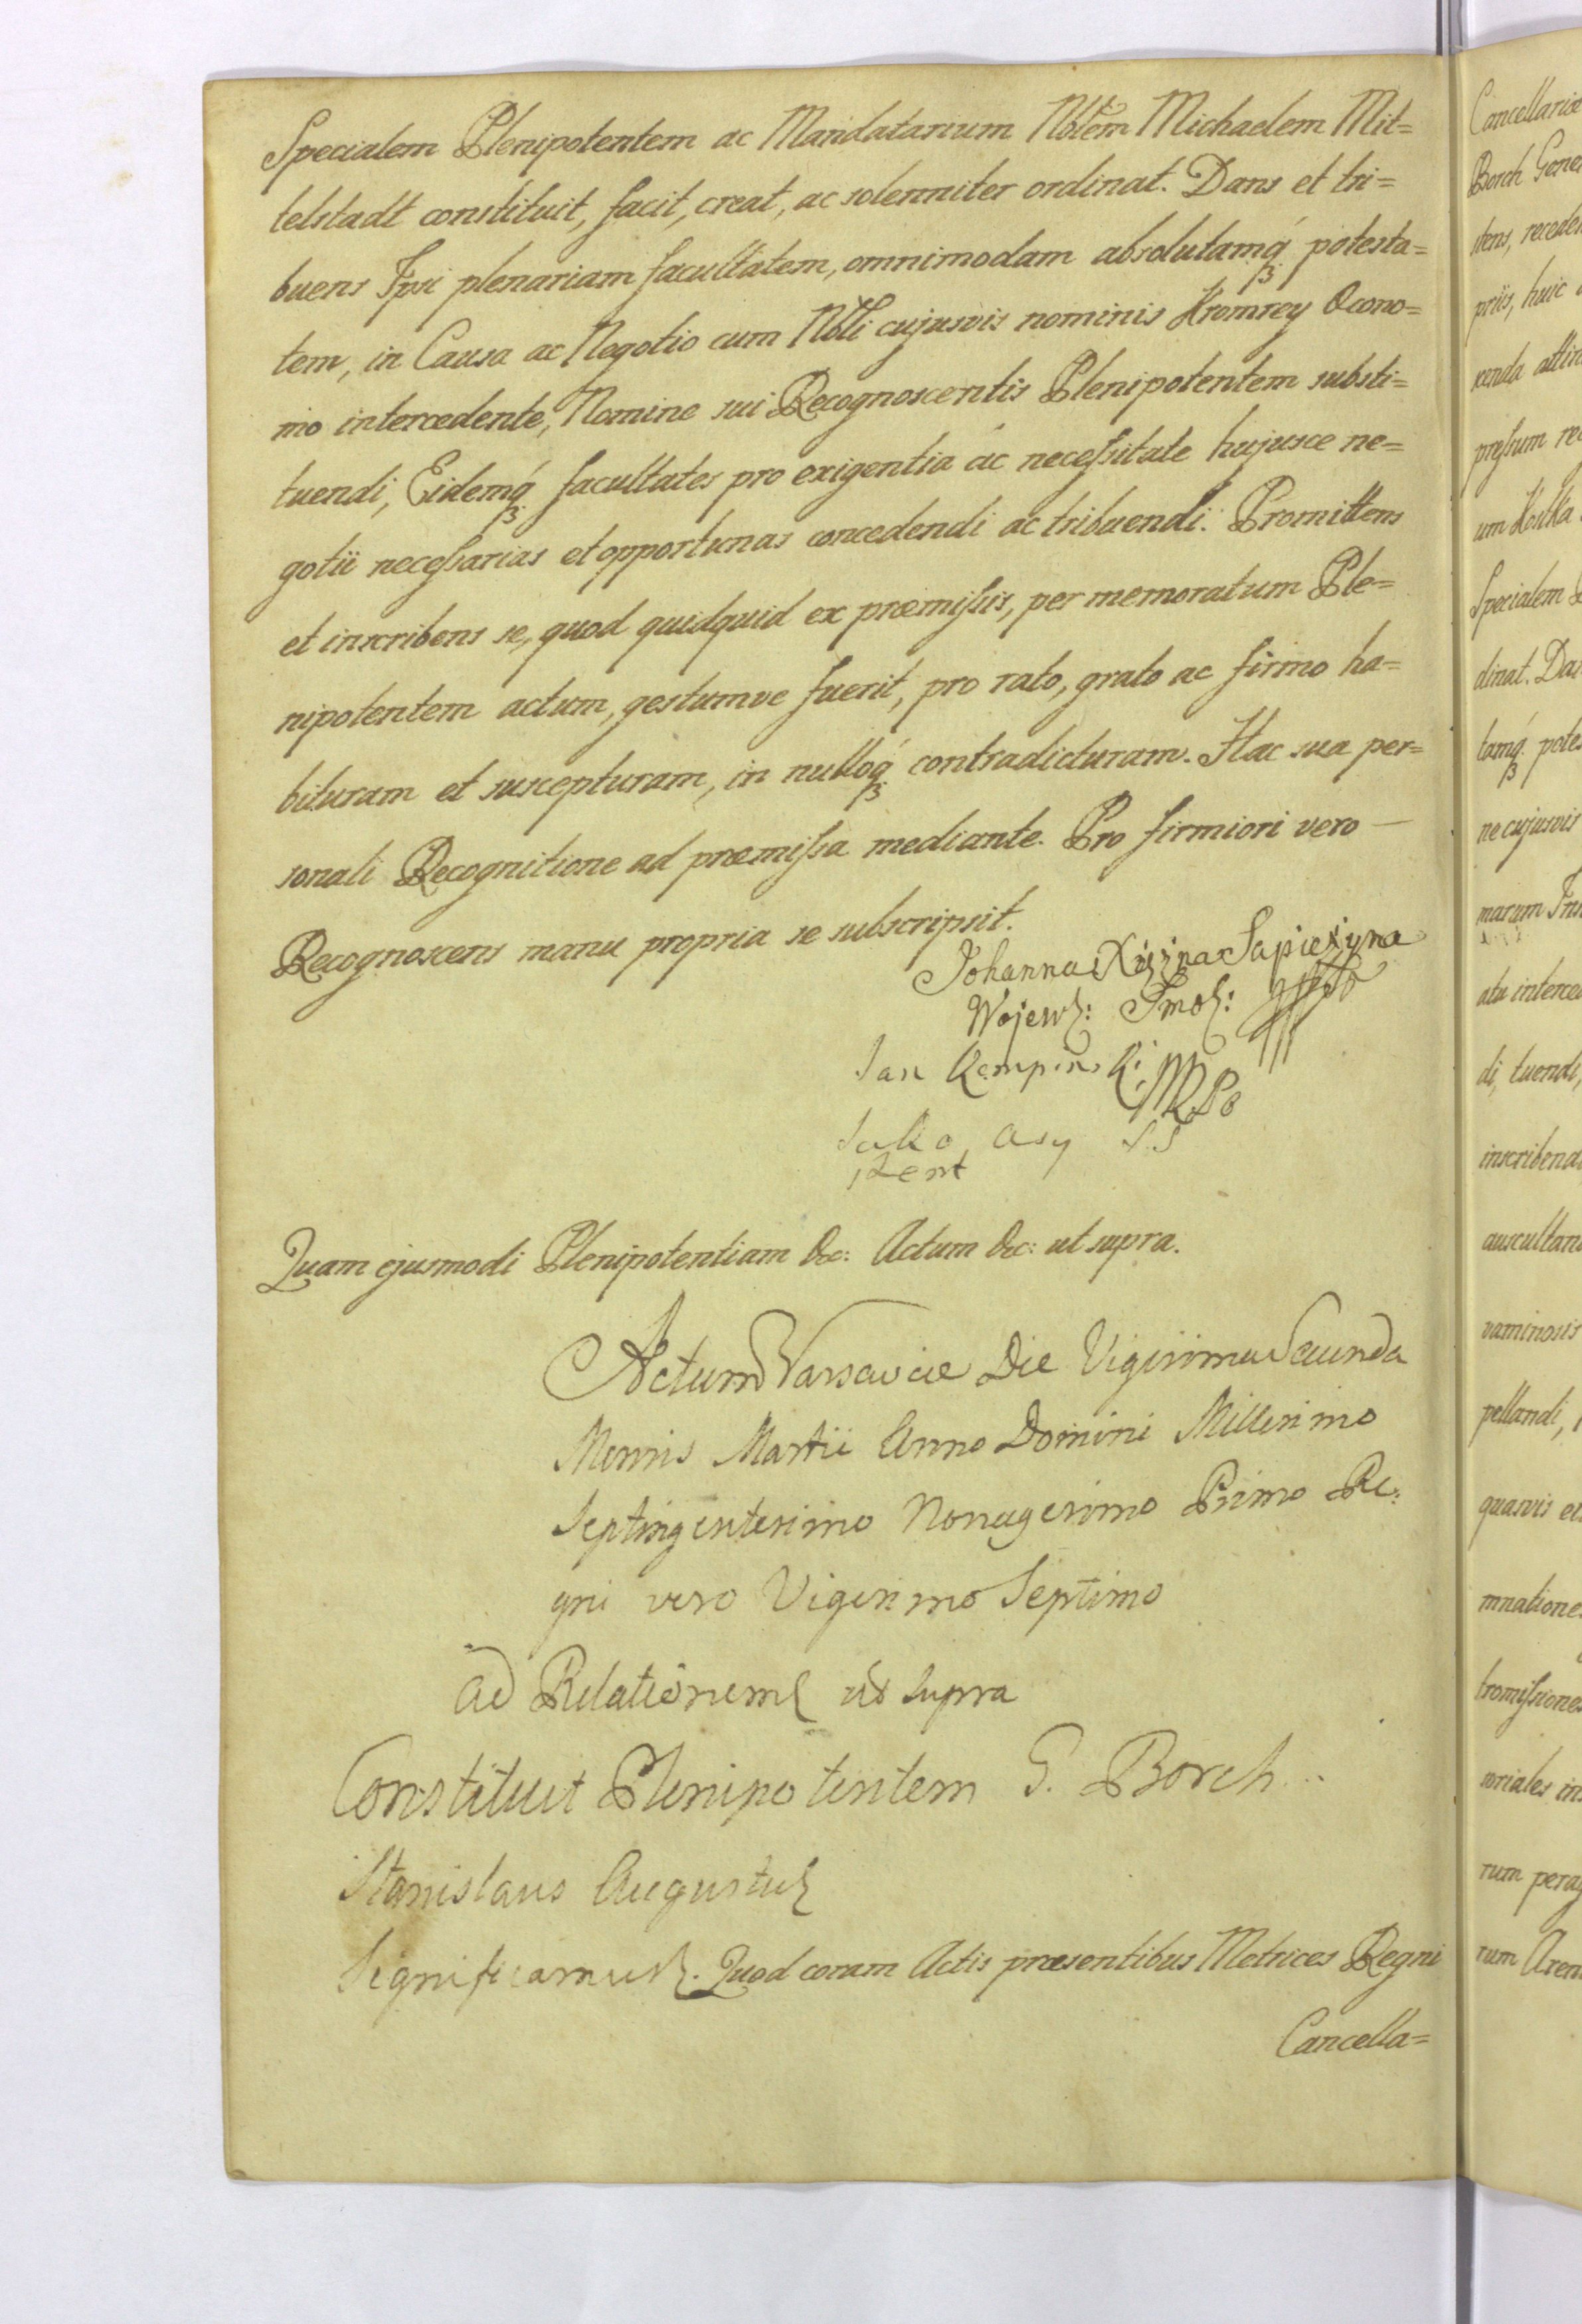 Specialem Plenipotentem ac Mandatarium Nobtem Michaelem Mit=
telstadt constituit, facit, creat, ac solenniter ordinat. Dans et tri=
buens Ipsi plenariam facultatem, omnimodam absolutamqꝫ potesta=
tem, in Causa ac Negotio cum Nobli cujusvis nominis Kromrey Œcono=
mo intercedente, Nomine sui Recognoscentis Plenipotentem substi=
tuendi, Eidemqꝫ facultates pro exigentia ac necessitate hujusce ne=
gotii necessarias et opportunas concedendi ac tribuendi. Promittens
et inscribens se, quod quidquid ex præmissis, per memoratum Ple=
nipotentem actum, gestumve fuerit, pro rato, grato ac firmo ha=
bituram et suscepturam, in nulloqꝫ contradicturam. Hac sua per=
sonali Recognitione ad præmissa mediante. Pro firmiori vero —
Recognoscens manu propria se subscripsit.
Johanna Xiężna Sapieżyna
Wojew: Smol:
Jan Kempinski
Jako Asy
stent
Quam ejusmodi Plenipotentiam &c: Actum &c: ut supra.
Actum Varsaviæ Die Vigesima Secunda
Mensis Martii Anno Domini Millesimo
Septingentesimo Nonagesimo Primo Re:
gni vero Vigesimo Septimo
Ad Relationem ut supra
Constituit Plenipotentem G. Borch
Stanislaus Augustus
Significamus. Quod coram Actis præsentibus Metrices Regni
Cancella=
Cancellariæ
Borch Gene
priis, huic
Specialem
dinat. Da
tamqꝫ pote
ne cujusvis
di, tuendi,
pellandi,
quasvis et
soriales in